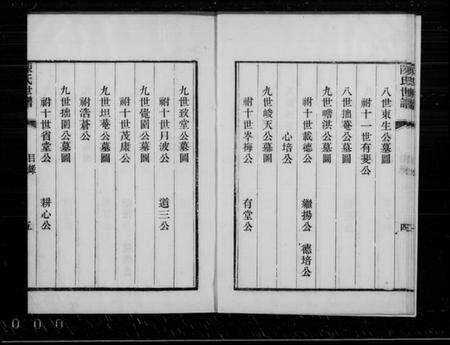 八世東生公墓圖
祔十一世有斐公
八世拙菴公墓圖
九世瞻淇公墓圖
祔十世戴德公 繼揚公 德培公
心培公
九世峻天公墓圖
祔十世岑梅公 有堂公
四
九世致堂公墓圖
祔十世月波公 道三公
九世覺園公墓圖
祔十世茂康公
九世坦菴公墓圖
祔浩蒼公
九世拙園公墓圖
祔十世省堂公 耕心公
氏世譜
目錄
五
000